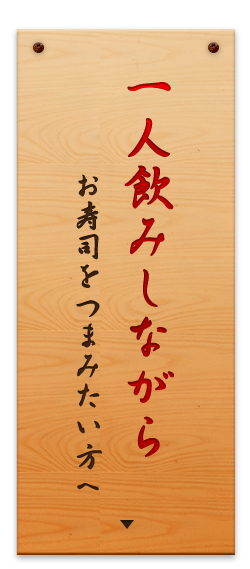 一人飲みしながら
お寿司をつまみたい方へ